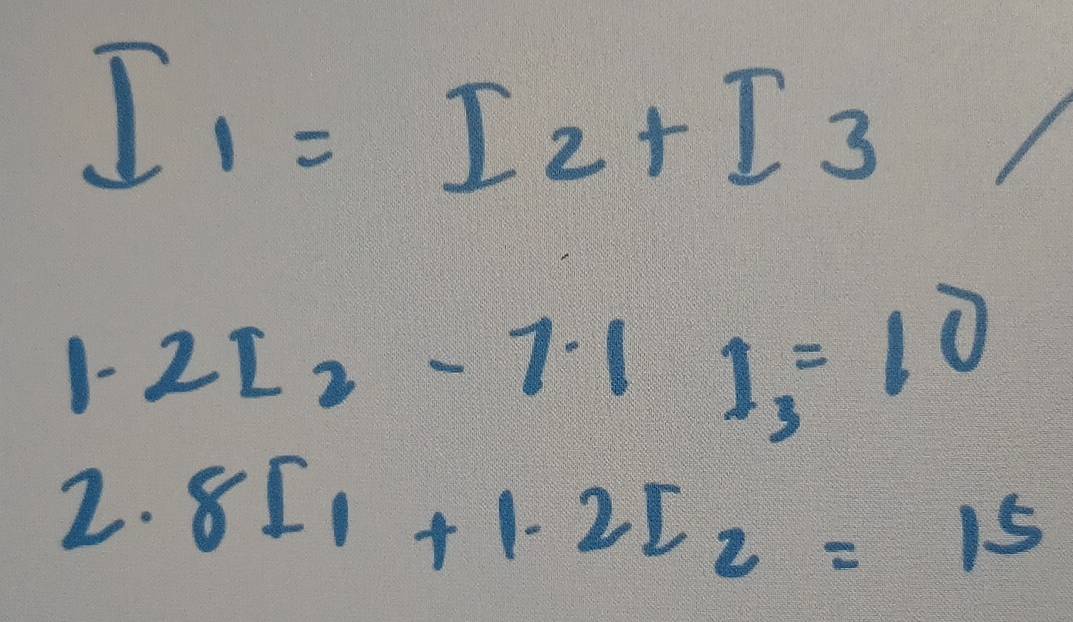 I1 = I2 + I3 /
1.2I2 - 7.1 I3 = 10
2.8I1 + 1.2I2 = 15